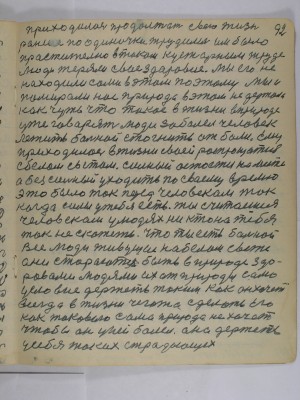 приходилося продолжат свою жизн
ранея по одиночки трудится им было
простително в таком културним труде
Люди теряли свае здаровие. Мы его не
находили сами в этом поэтому мы и
помирали нас природа в этом не держит
как чуть что такое в жизни в природе
уже говарят люди заболел человек
лежить больной стогнить от боли. Ему
приходилос в жизни своей распрощатся
с белом светам. силный остаться на мести
а без силный уходить по своему времю
Это было так перед человекам так
когда силы у тебя есть. ты считаешся
человекам у людях ни кто на тебя
так не скажеть. что ты есть болной
Все люди живущие на белом свети
они стараются быть в природе здо-
ровами людями их эта природа само
цело вие держить таким как он хочит
всегда в жизни чего та сделать его
как такового сама природа не хочит
чтобы он у ней болел. она держить
у себя таких страдающих
92